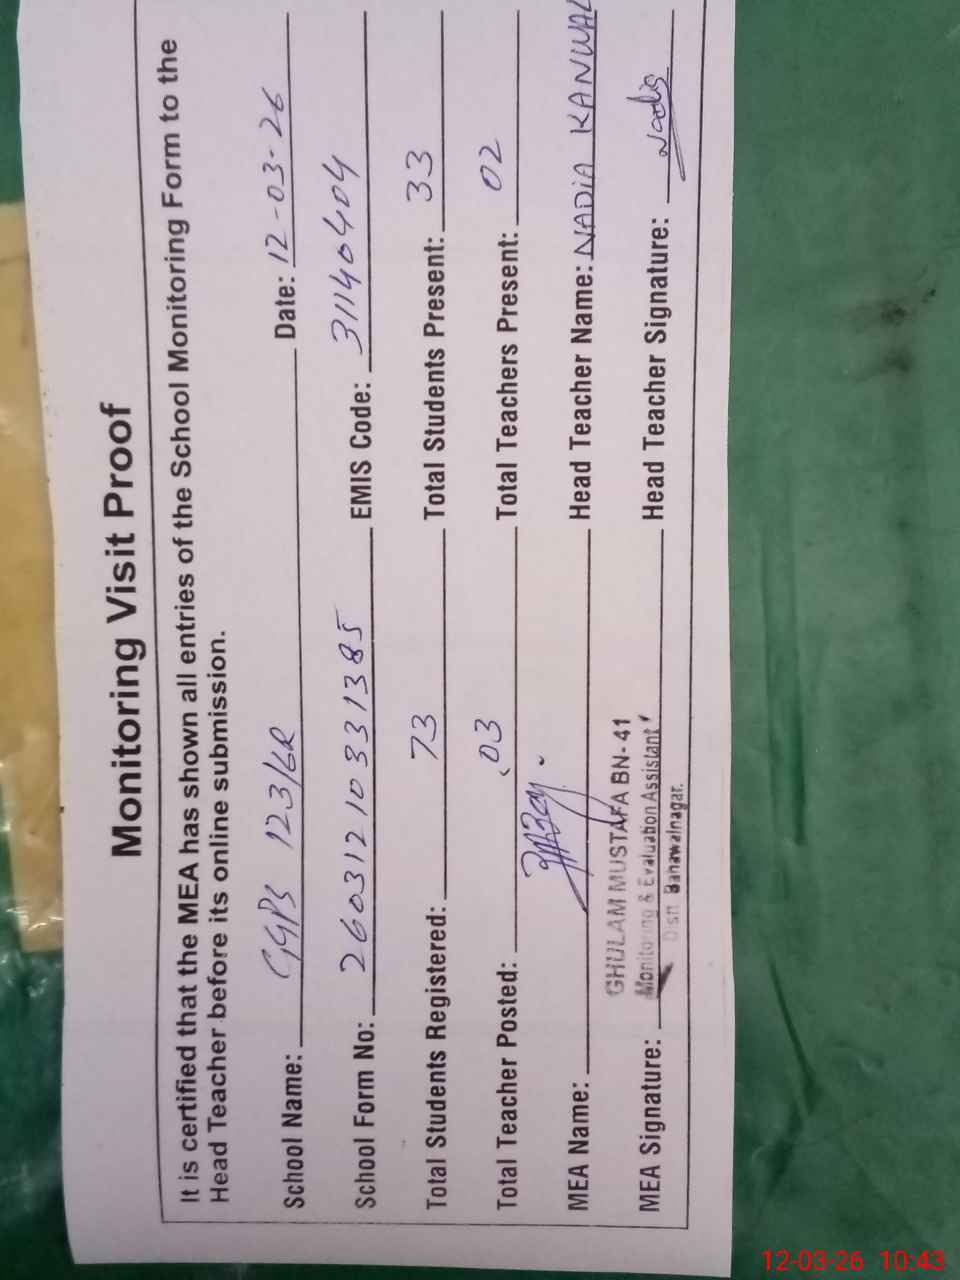 Monitoring Visit Proof
It is certified that the MEA has shown all entries of the School Monitoring Form to the
Head Teacher before its online submission.
School Name: GGPS 123/6R Date: 12-03-26
School Form No: 26031210331385 EMIS Code: 31140404
Total Students Registered: 73 Total Students Present: 33
Total Teacher Posted: 03 Total Teachers Present: 02
MEA Name: Head Teacher Name: NADIA KANWAL
GHULAM MUSTAFA BN-41
Monitoring & Evaluation Assistant
Distt Bahawalnagar.
MEA Signature: Head Teacher Signature: Nadia
12-03-26 10:43